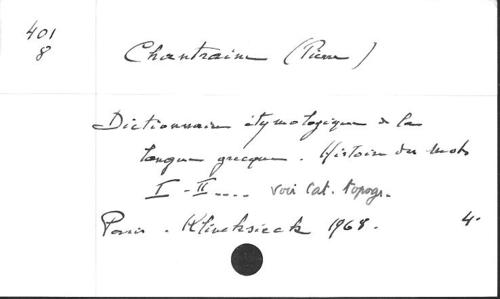 401
8
Chantraine (Pierre)
Dictionnaire étymologique de la
langue grecque. Histoire des mots
I - II .... voir Cat. topogr.
Paris. Klincksieck 1968. 4°